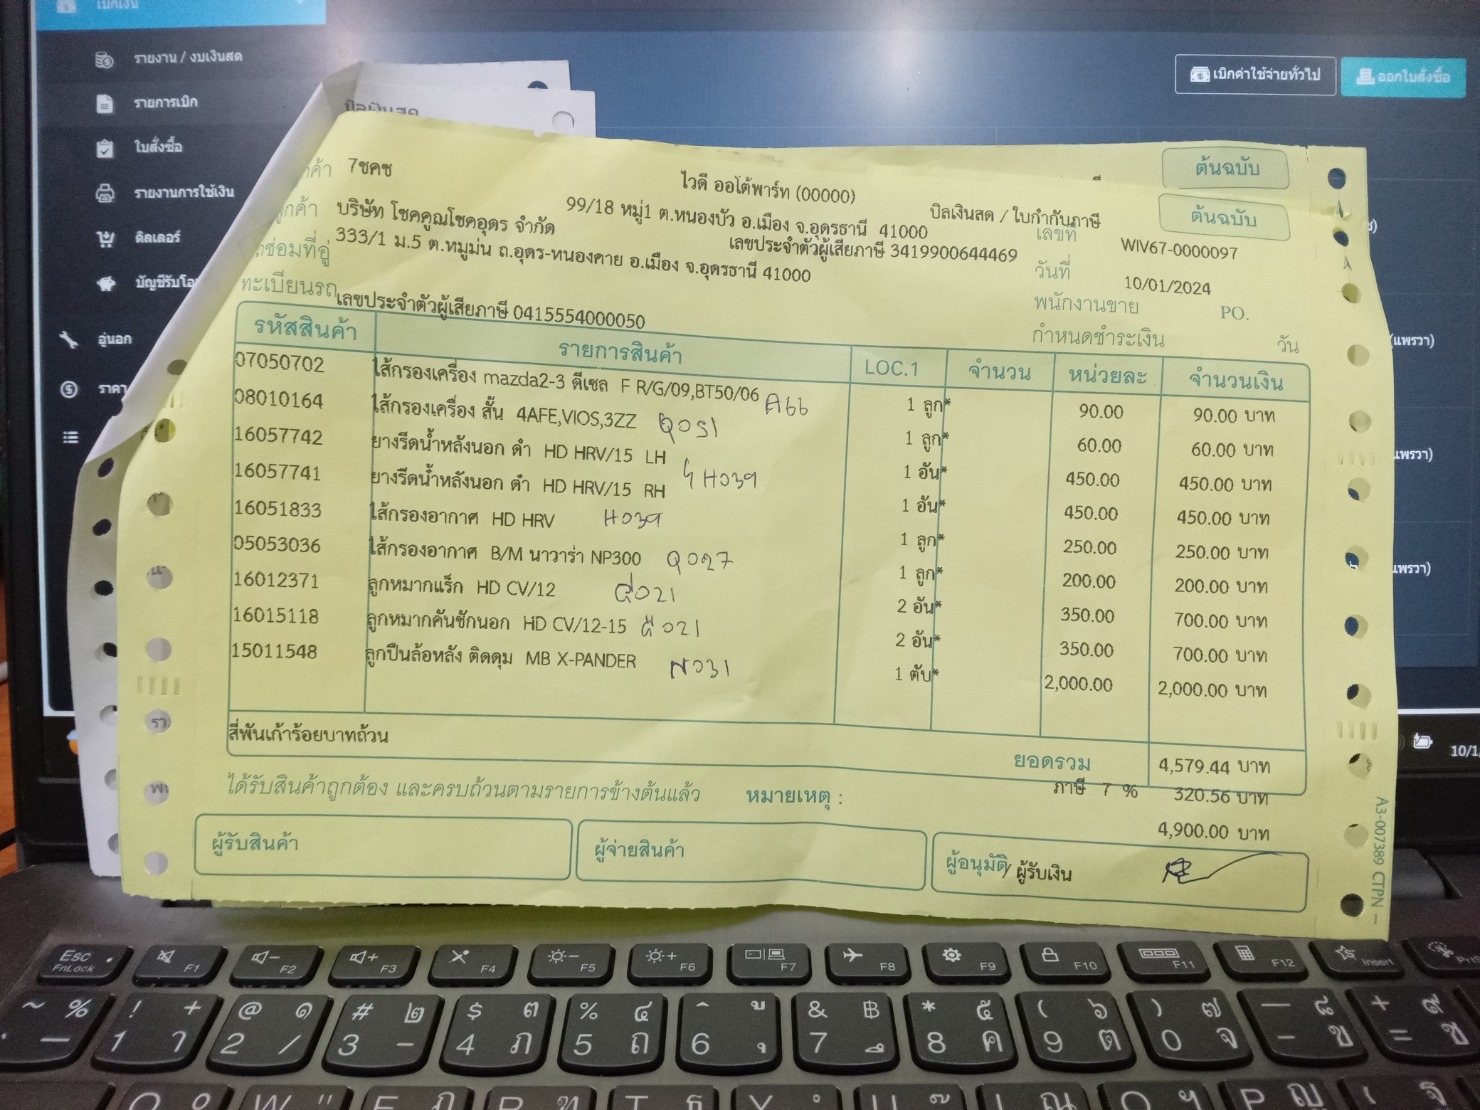 เบิกเงิน
รายงาน / งบเงินสด
รายการเบิก
ใบสั่งซื้อ
รายงานการใช้เงิน
ดีลเลอร์
บัญชีรับโอน
อู่นอก
ราคา
เบิกค่าใช้จ่ายทั่วไป
ออกใบสั่งซื้อ
(แพรวา)
แพรวา)
แพรวา)
10/1
บิลเงินสด
ต้นฉบับ
ต้นฉบับ
7ชคช
ไวดี ออโต้พาร์ท (00000)
99/18 หมู่1 ต.หนองบัว อ.เมือง จ.อุดรธานี 41000
บิลเงินสด / ใบกำกับภาษี
เลขประจำตัวผู้เสียภาษี 3419900644469
บริษัท โชคคูณโชคอุดร จำกัด
333/1 ม.5 ต.หมูม่น ถ.อุดร-หนองคาย อ.เมือง จ.อุดรธานี 41000
เลขประจำตัวผู้เสียภาษี 0415554000050
ทะเบียนรถ
เลขที่ WIV67-0000097
วันที่ 10/01/2024
พนักงานขาย PO.
กำหนดชำระเงิน วัน
รหัสสินค้า รายการสินค้า LOC.1 จำนวน หน่วยละ จำนวนเงิน
07050702 ไส้กรองเครื่อง mazda2-3 ดีเซล F R/G/09,BT50/06 A66 1 ลูก* 90.00 90.00 บาท
08010164 ไส้กรองเครื่อง สั้น 4AFE,VIOS,3ZZ Q051 1 ลูก* 60.00 60.00 บาท
16057742 ยางรีดน้ำหลังนอก ดำ HD HRV/15 LH 1 อัน* 450.00 450.00 บาท
16057741 ยางรีดน้ำหลังนอก ดำ HD HRV/15 RH H039 1 อัน* 450.00 450.00 บาท
16051833 ไส้กรองอากาศ HD HRV H039 1 ลูก* 250.00 250.00 บาท
05053036 ไส้กรองอากาศ B/M นาวาร่า NP300 Q027 1 ลูก* 200.00 200.00 บาท
16012371 ลูกหมากแร็ก HD CV/12 2 อัน* 350.00 700.00 บาท
16015118 ลูกหมากคันชักนอก HD CV/12-15 2 อัน* 350.00 700.00 บาท
15011548 ลูกปืนล้อหลัง ติดดุม MB X-PANDER N031 1 ตับ* 2,000.00 2,000.00 บาท
สี่พันเก้าร้อยบาทถ้วน
ยอดรวม 4,579.44 บาท
ได้รับสินค้าถูกต้อง และครบถ้วนตามรายการข้างต้นแล้ว หมายเหตุ : ภาษี 7 % 320.56 บาท
4,900.00 บาท
ผู้รับสินค้า ผู้จ่ายสินค้า ผู้อนุมัติ / ผู้รับเงิน
A3-007389 CTPN -
Esc FnLock F1 F2 F3 F4 F5 F6 F7 F8 F9 F10 F11 F12 Insert
~ % ! + @ ๑ # ๒ $ ๓ % ๔ ^ ู & ฿ * ๕ ( ๖ ) ๗ — ๘ + ๙
1 ๅ 2 / 3 - 4 ภ 5 ถ 6 ุ 7 ึ 8 ค 9 ต 0 จ - ข = ช